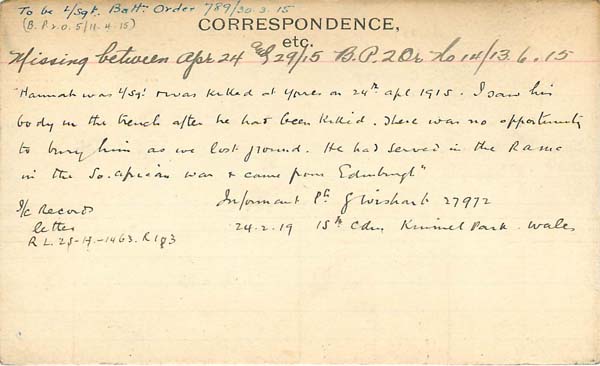 To be L/Sgt. Battn Order 789/30.3.15
(B.P.2.O.5/11.4.15)
CORRESPONDENCE,
etc.
Missing between Apr 24 & 29/15 B.P.2 Or No 14/13.6.15
"Hannah was L/Sgt & was killed at Ypres on 24th Apl 1915. I saw his
body in the trench after he had been killed. There was no opportunity
to bury him as we lost ground. He had served in the RAMC
in the So. African war & came from Edinburgh"
I/c Records Informant Pte G Wishart 27972
letter 24.2.19 15th Cdn. Kinmel Park. Wales
R.L. 25-H-1463. R1